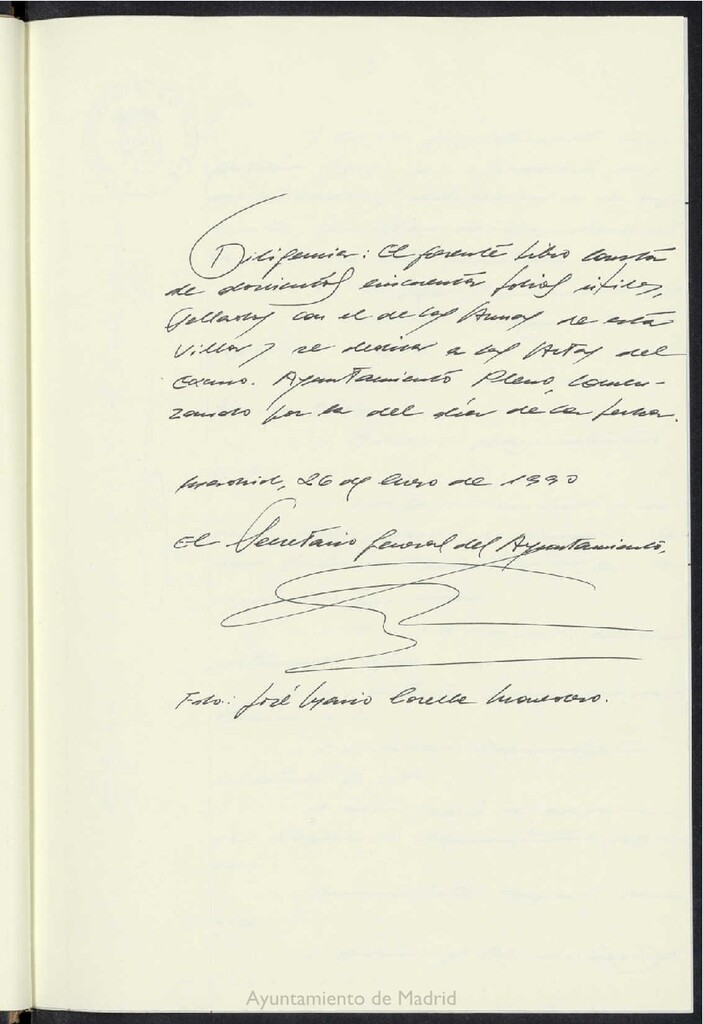 Diligencia: El presente Libro consta
de doscientos cincuenta folios útiles,
sellados con el de las Armas de esta
Villa y se dedica a las Actas del
Excmo. Ayuntamiento Pleno, comen-
zando por la del día de la fecha.
Madrid, 26 de Enero de 1990
El Secretario General del Ayuntamiento,
Fdo.: José Mario Corella Monedero.
Ayuntamiento de Madrid